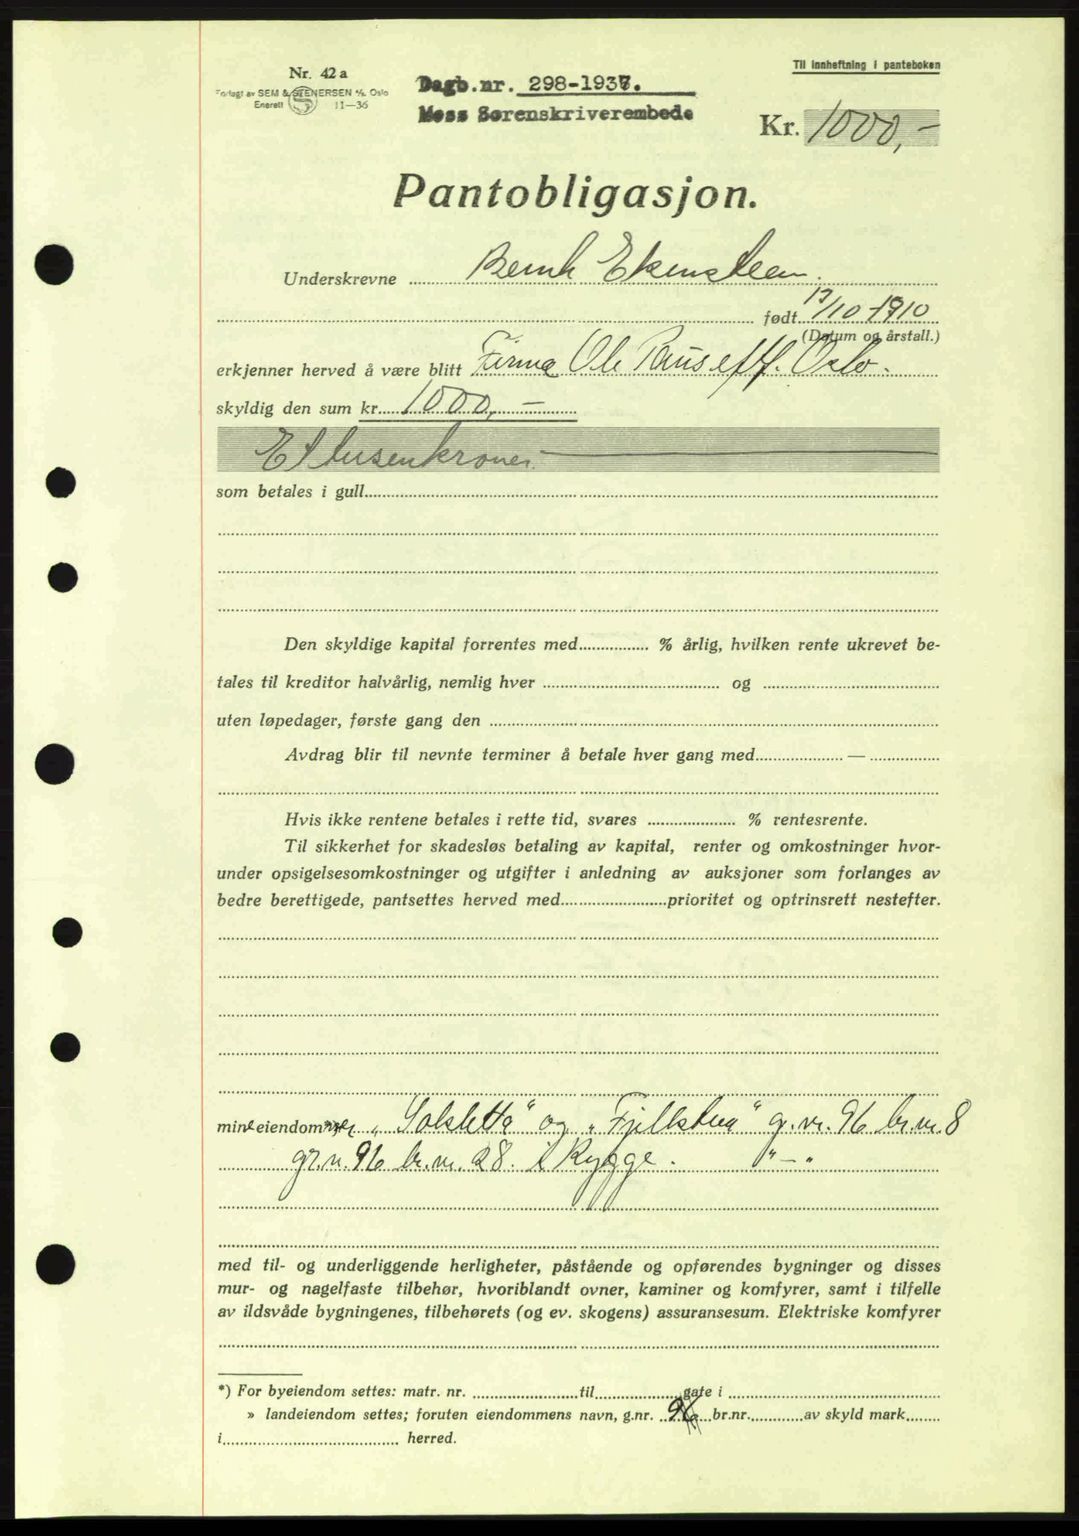 Nr. 42 a
Forlagt av SEM & STENERSEN A/S. Oslo
Enerett 11—36
Dagb.nr. 298-1937.
Moss Sorenskriverembede
Til innheftning i panteboken
Kr. 1000,-
Pantobligasjon.
Underskrevne Bernh Ekensteen.
født 17/10-1910
(Datum og årstall.)
erkjenner herved å være blitt Firma Ole Raus eftf. Oslo.
skyldig den sum kr. 1000,-
Et tusen kroner
som betales i gull
Den skyldige kapital forrentes med % årlig, hvilken rente ukrevet be-
tales til kreditor halvårlig, nemlig hver og
uten løpedager, første gang den
Avdrag blir til nevnte terminer å betale hver gang med —
Hvis ikke rentene betales i rette tid, svares % rentesrente.
Til sikkerhet for skadesløs betaling av kapital, renter og omkostninger hvor-
under opsigelsesomkostninger og utgifter i anledning av auksjoner som forlanges av
bedre berettigede, pantsettes herved med prioritet og optrinsrett nestefter.
mine eiendommer „Solsletta" og „Fjellstua" g.nr. 96 br.nr. 8
gr.n. 96 br.nr. 28. i Rygge. "—"
med til- og underliggende herligheter, påstående og opførendes bygninger og disses
mur- og nagelfaste tilbehør, hvoriblandt ovner, kaminer og komfyrer, samt i tilfelle
av ildsvåde bygningenes, tilbehørets (og ev. skogens) assuransesum. Elektriske komfyrer
*) For byeiendom settes: matr. nr. til gate i
» landeiendom settes; foruten eiendommens navn, g.nr. 96 br.nr. av skyld mark
i herred.